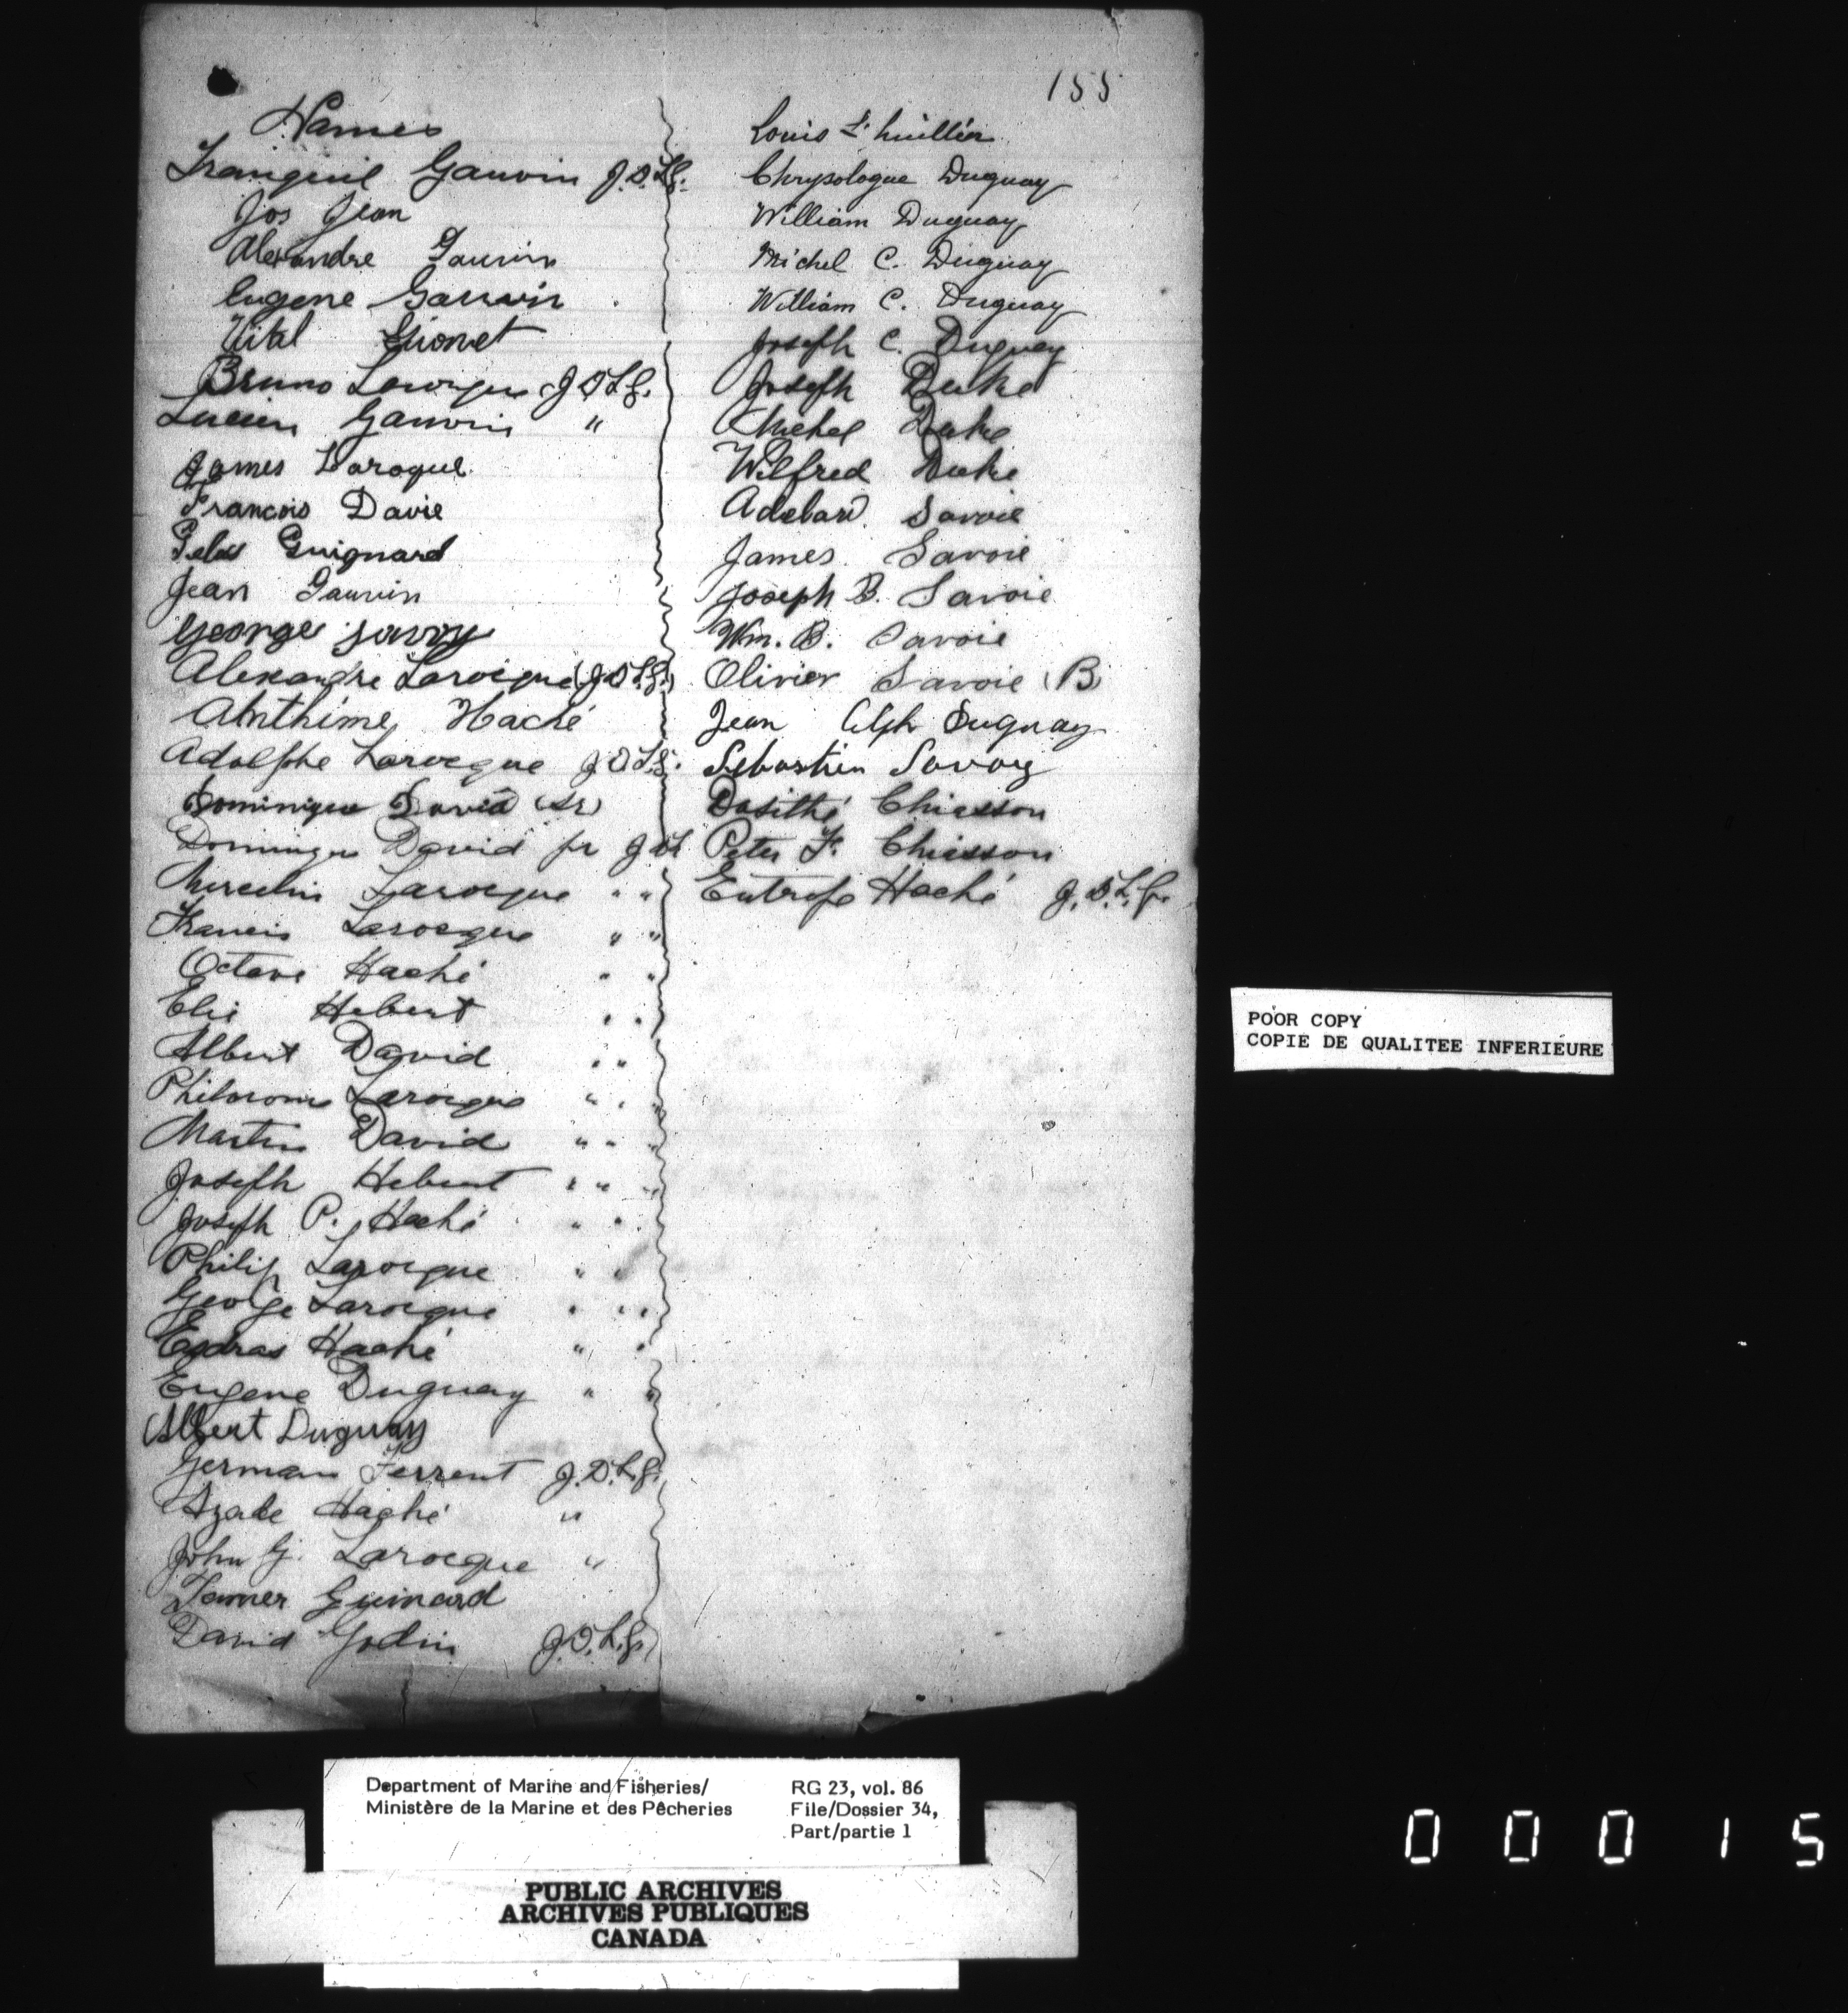 155
Names
Tranquil Gauvin J.D.L.G.
Jos Jean
Alexandre Gauvin
Eugene Gauvin
Vital Gionet
Bruno Larocque J D L G.
Lucien Gauvin "
James Laroque
Francois Davie
Felix Guignard
Jean Gauvin
George Savoy
Alexandre Larocque (J D L G.)
Anthime Haché
Adolphe Larocque J D L G.
Dominique David (Sr)
Dominque David jr J D L
Marcelin Larocque " "
Francis Larocque " "
Octave Haché " "
Elie Hebert " "
Albert David " "
Philorome Larocque " " "
Martin David " " "
Joseph Hebert " " "
Joseph P. Haché " "
Philip Larocque " "
George Larocque " " "
Esdras Haché " "
Eugene Duguay " "
Albert Duguay
Germain Ferrent J.D.L.G.
Azade Haché "
John G. Larocque "
Guinard
David Godin J.D.L.G.
Louis L'huillier
Chrysologue Duguay
William Duguay
Michel C. Duguay
William C. Duguay
Joseph C. Duguay
Joseph Duke
Michel Duke
Wilfred Duke
Adelard Savoie
James Savoie
Joseph B. Savoie
Wm. B. Savoie
Olivier Savoie (B)
Jean Alph Duguay
Sebastien Savoy
Dosithé Chiasson
Peter F. Chiasson
Eutrope Haché J.D.L.G.
POOR COPY
COPIE DE QUALITEE INFERIEURE
Department of Marine and Fisheries/
Ministère de la Marine et des Pêcheries
RG 23, vol. 86
File/Dossier 34,
Part/partie 1
PUBLIC ARCHIVES
ARCHIVES PUBLIQUES
CANADA
0 0 0 1 5